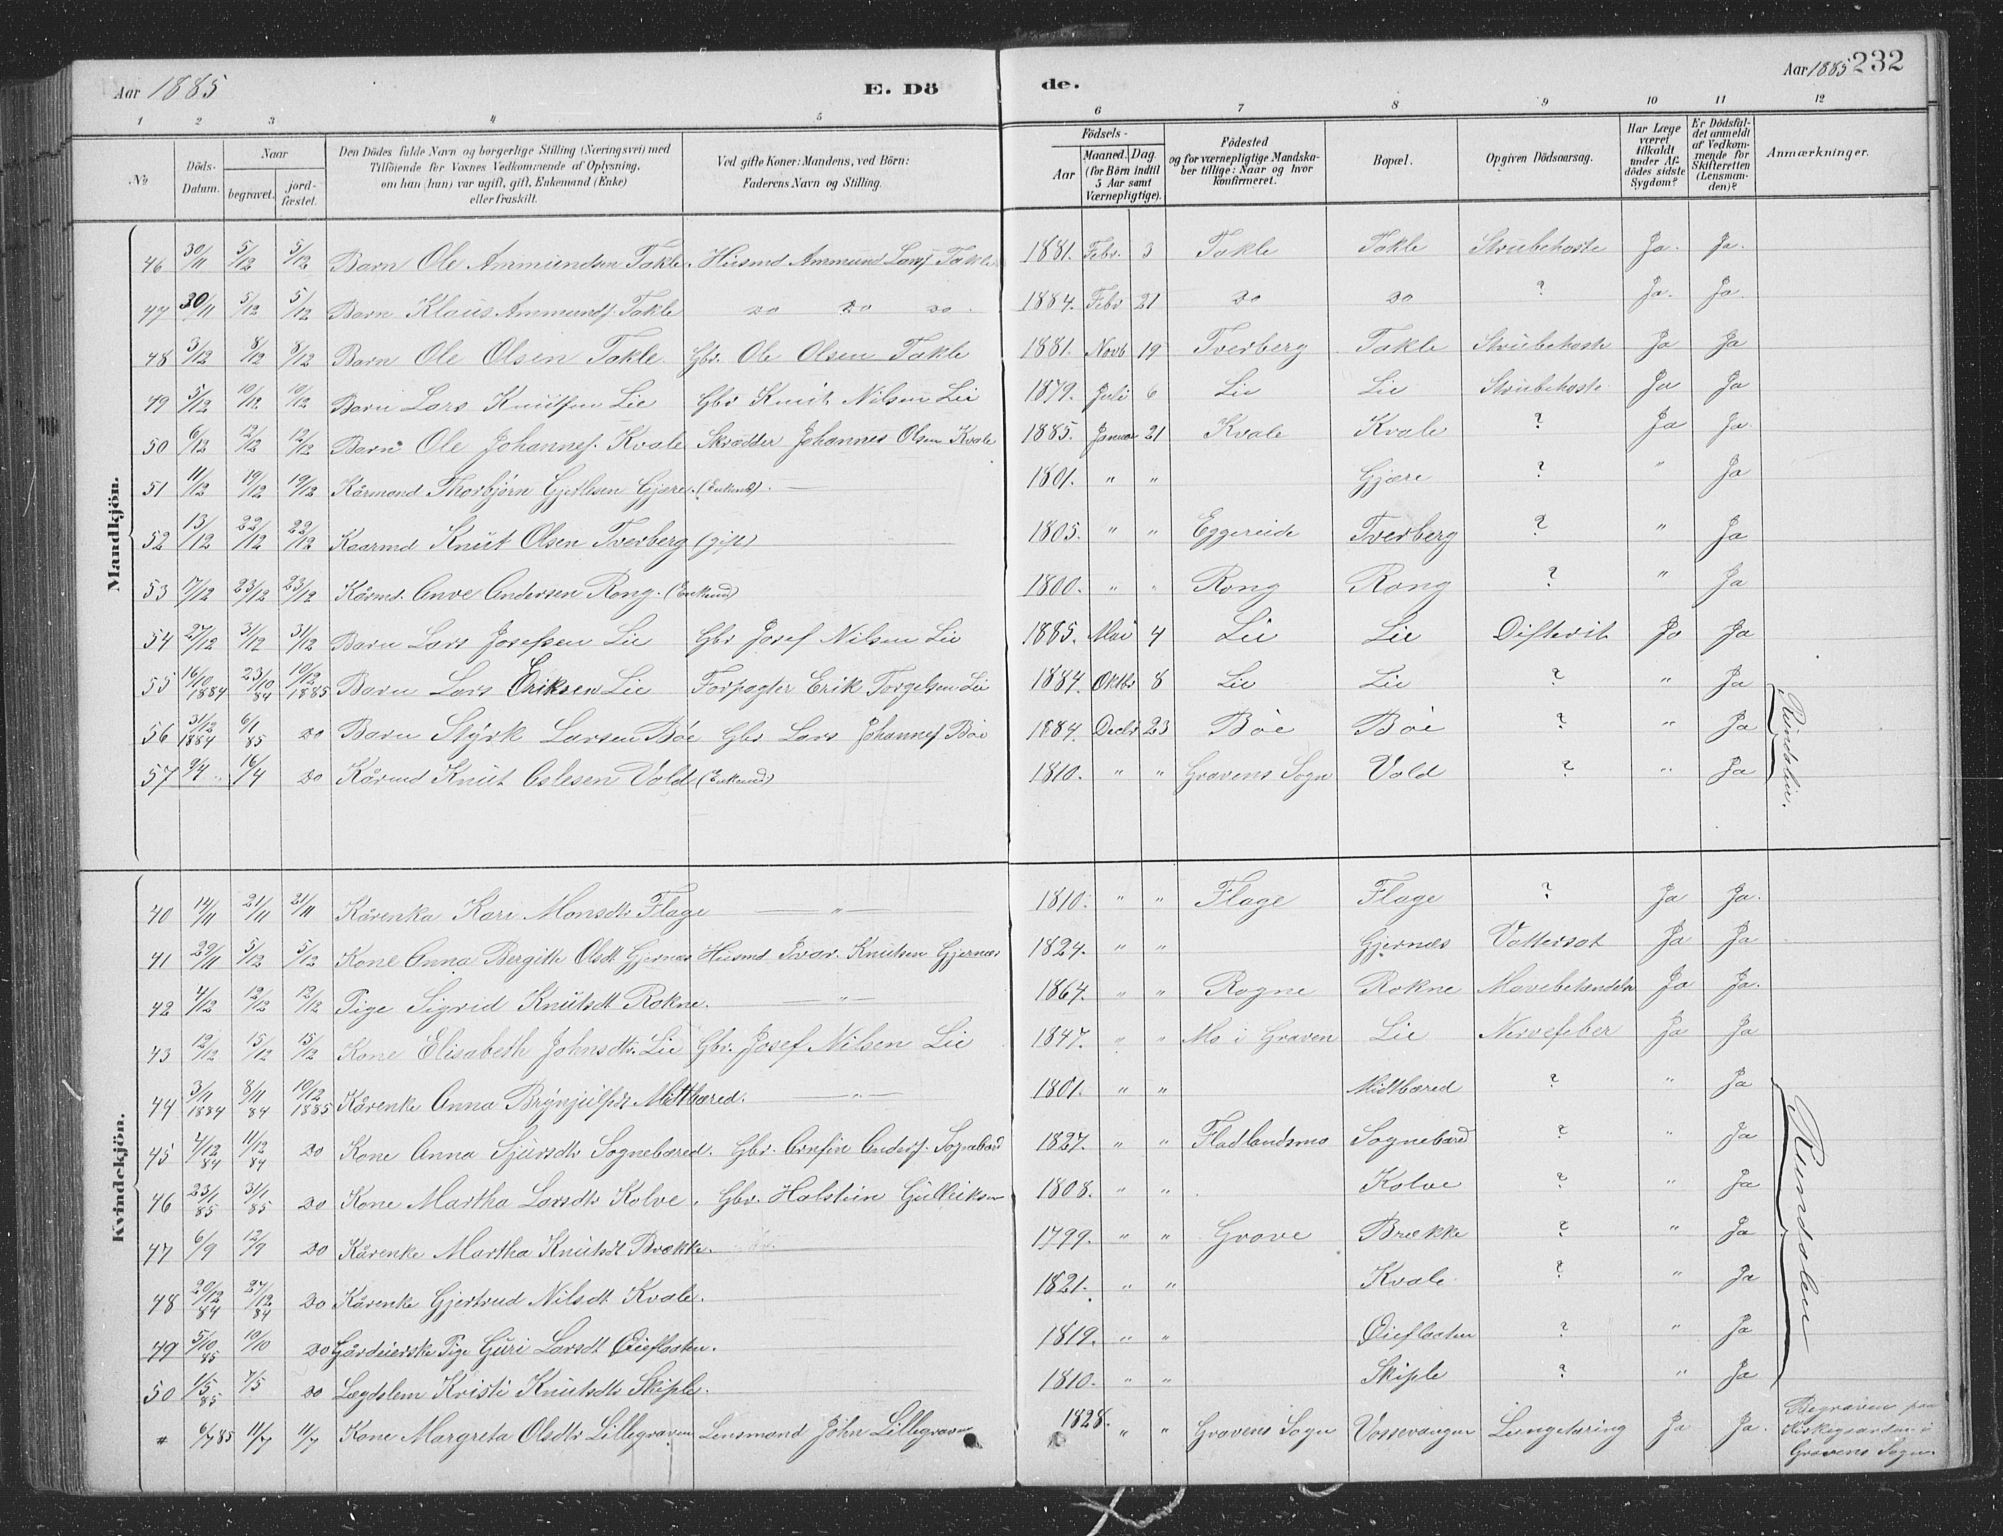 Aar 1885 E. Dö de. Aar 1885 232
1 2 3 4 5 6 7 8 9 10 11 12
No Döds-Datum. Naar begravet. jordfæstet. Den Dödes fulde Navn og borgerlige Stilling (Næringsvei) med Tilföiende for Voxnes Vedkommende af Oplysning, om han (hun) var ugift, gift, Enkemand (Enke) eller fraskilt. Ved gifte Koner: Mandens, ved Börn: Faderens Navn og Stilling. Födsels- Aar Maaned. Dag. (for Börn indtil 5 Aar samt Værnepligtige). Födested og for værnepligtige Mandskaber tillige: Naar og hvor Konfirmeret. Bopæl. Opgiven Dödsaarsag. Har Læge været tilkaldt under Afdödes sidste Sygdom? Er Dödsfaldet anmeldt af Vedkommende for Skifteretten (Lensmanden)? Anmærkninger.
Mandkjön.
46 30/11 5/12 5/12 Barn Ole Ammundsen Takle. Husmd Ammund Larsf. Takle 1881. Febr. 3 Takle Takle Strubehoste Ja. Ja.
47 30/11 5/12 5/12 Barn Klaus Ammundsf. Takle do do do. 1884. Febr 21 do do ? Ja. Ja.
48 3/12 8/12 8/12 Barn Ole Olsen Takle. Gbr. Ole Olsen Takle 1881. Novb 19 Tverberg Takle Strubehoste Ja Ja
49 5/12 10/12 10/12 Barn Lars Knutsen Lie Gbr Knut Nilsen Lie 1879. Juli 6 Lie Lie Strubehoste Ja Ja
50 6/12 12/12 12/12 Barn Ole Johannesf. Kvale Skrædder Johannes Olsen Kvale 1885. Januar 21 Kvale Kvale ? Ja Ja
51 11/12 19/12 19/12 Kårmand Thorbjörn Gjetlesen Gjære. (Enkmd). 1801. " " Gjære ? " Ja
52 13/12 22/12 22/12 Kaarmd Knut Olsen Tverberg (gift) 1805. " " Eggereide Tverberg ? " Ja
53 7/12 23/12 23/12 Kårmd. Anve Andersen Rong. (Enkmd) 1800. " " Rong Rong ? " Ja
54 27/12 31/12 31/12 Barn Lars Josefsen Lie Gbr Josef Nilsen Lie 1885. Mai 4 Lie Lie Difterit Ja Ja
55 16/10 1884 23/10 84 10/12 1885 Barn Lars Eriksen Lie Forpagter Erik Torgelsen Lie 1884. Oktbr 8 Lie Lie ? " Ja
56 31/12 1884 6/1 85 do Barn Styrk Larsen Böe Gbr Lars Johannesf Böe 1884. Decbr 23 Böe Böe ? " Ja Rundalen.
57 9/4 16/4 do Kårmd Knut Aslesen Vold (Enkmd) 1810. " " Gravens Sogn Vold ? " Ja
Kvindekjön.
40 14/11 21/11 21/11 Kårenka Kari Monsdtr Flage " 1810. " " Flage Flage ? Ja Ja.
41 29/11 5/12 5/12 Kone Anna Bergitte Olsdt Gjernæs Husmd Ivar Knutsen Gjernæs 1824. " " Gjernæs Vattersot Ja Ja
42 4/12 12/12 12/12 Pige Sigrid Knutsdt Rokne. " 1864. " " Rogne Rokne Mavebetændelse Ja Ja.
43 12/12 15/12 15/12 Kone Elisabeth Johnsdtr. Lie Gbr. Josef Nilsen Lie 1847. " " Mo i Graven Lie Nervefeber Ja Ja
44 3/11 1884 8/11 84 10/12 1885 Kårenke Anna Brynjulfsdt Midtbæred. " 1801. " " Midtbæred ? " Ja
45 4/12 84 11/12 84 do Kone Anna Sjursdtr Sognebæred. Gbr. Arnfin Andersf. 1827. " " Fladlandsmo Sognebæred ? " Ja
46 23/1 85 31/1 85 do Kone Martha Larsdtr Kolve. Gbr. Halstein Gullriksen 1808. " " Kolve ? " Ja
47 6/9 12/9 do Kårenke Martha Knutsdt Brække. 1799. " " Grove Brække ? " Ja Rundalen
48 20/12 84 27/12 84 do Kårenke Gjertrud Nilsdt Kvale. 1821. " " Kvale ? " Ja
49 5/10 85 10/10 do Gårdeierske Pige Guri Larsdt Öieflaaten. 1819. " " Öieflaaten ? " Ja
50 1/5 85 7/5 do Lægdslem Kristi Knutsdtr Skiple. 1810. " " Skiple ? " Ja
* 6/7 85 11/7 11/7 Kone Margreta Olsdtr Lillegraven Lensmand John Lillegraven 1828. " " Gravens Sogn Vossevangen Lungetæring Ja Ja. Begraven paa Kirkegaarden i Gravens Sogn